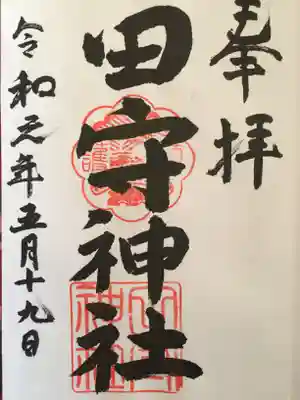 奉拝
田守神社
令和元年五月十九日